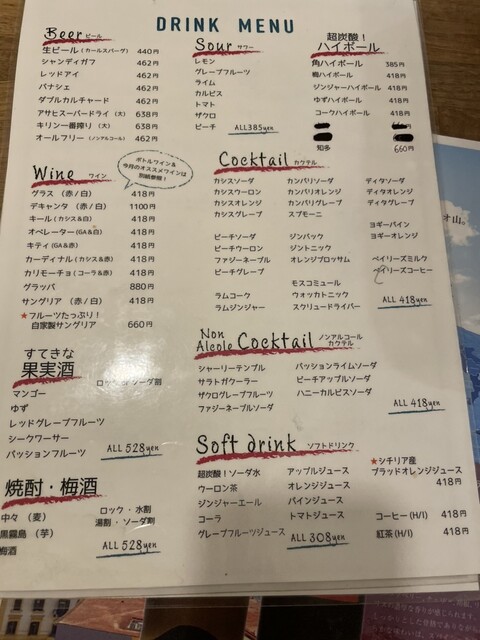 DRINK MENU
Beer ビール
生ビール (カールスバーグ) 440円
シャンディガフ 462円
レッドアイ 462円
パナシェ 462円
ダブルカルチャード 462円
アサヒスーパードライ (大) 638円
キリン一番搾り (大) 638円
オールフリー (ノンアルコール) 462円
Sour サワー
レモン
グレープフルーツ
ライム
カルピス
トマト
ザクロ
ピーチ ALL385yen
超炭酸!
ハイボール
角ハイボール 385円
梅ハイボール 418円
ジンジャーハイボール 418円
ゆずハイボール 418円
コークハイボール 418円
知多 660円
Wine ワイン
ボトルワイン&
今月のオススメワインは
別紙参照!
グラス (赤/白) 418円
デキャンタ (赤/白) 1100円
キール(カシス&白) 418円
オペレーター(GA&白) 418円
キティ(GA&赤) 418円
カーディナル(カシス&赤) 418円
カリモーチョ(コーラ&赤) 418円
グラッパ 880円
サングリア (赤/白) 418円
★フルーツたっぷり!
自家製サングリア 660円
Cocktail カクテル
カシスソーダ カンパリソーダ ディタソーダ
カシスウーロン カンパリオレンジ ディタオレンジ
カシスオレンジ カンパリグレープ ディタグレープ
カシスグレープ スプモーニ
ヨギーパイン
ピーチソーダ ジンバック ヨギーオレンジ
ピーチウーロン ジントニック
ファジーネーブル オレンジブロッサム ベイリーズミルク
ピーチグレープ ベイリーズコーヒー
モスコミュール
ラムコーク ウォッカトニック ALL 418yen
ラムジンジャー スクリュードライバー
すてきな
果実酒
ロック or ソーダ割
マンゴー
ゆず
レッドグレープフルーツ
シークワーサー
パッションフルーツ ALL 528yen
Non
Alcole Cocktail ノンアルコール
カクテル
シャーリーテンプル パッションライムソーダ
サラトガクーラー ピーチアップルソーダ
ザクログレープフルーツ ハニーカルピスソーダ
ファジーネーブルソーダ ALL 418yen
焼酎・梅酒
中々 (麦) ロック ・ 水割
黒霧島 (芋) 湯割 ・ ソーダ割
梅酒 ALL 528yen
Soft drink ソフトドリンク
超炭酸!ソーダ水 アップルジュース
ウーロン茶 オレンジジュース
ジンジャーエール パインジュース
コーラ トマトジュース
グレープフルーツジュース ALL 308yen
★シチリア産
ブラッドオレンジジュース
418円
コーヒー(H/I) 418円
紅茶(H/I) 418円
オ山。